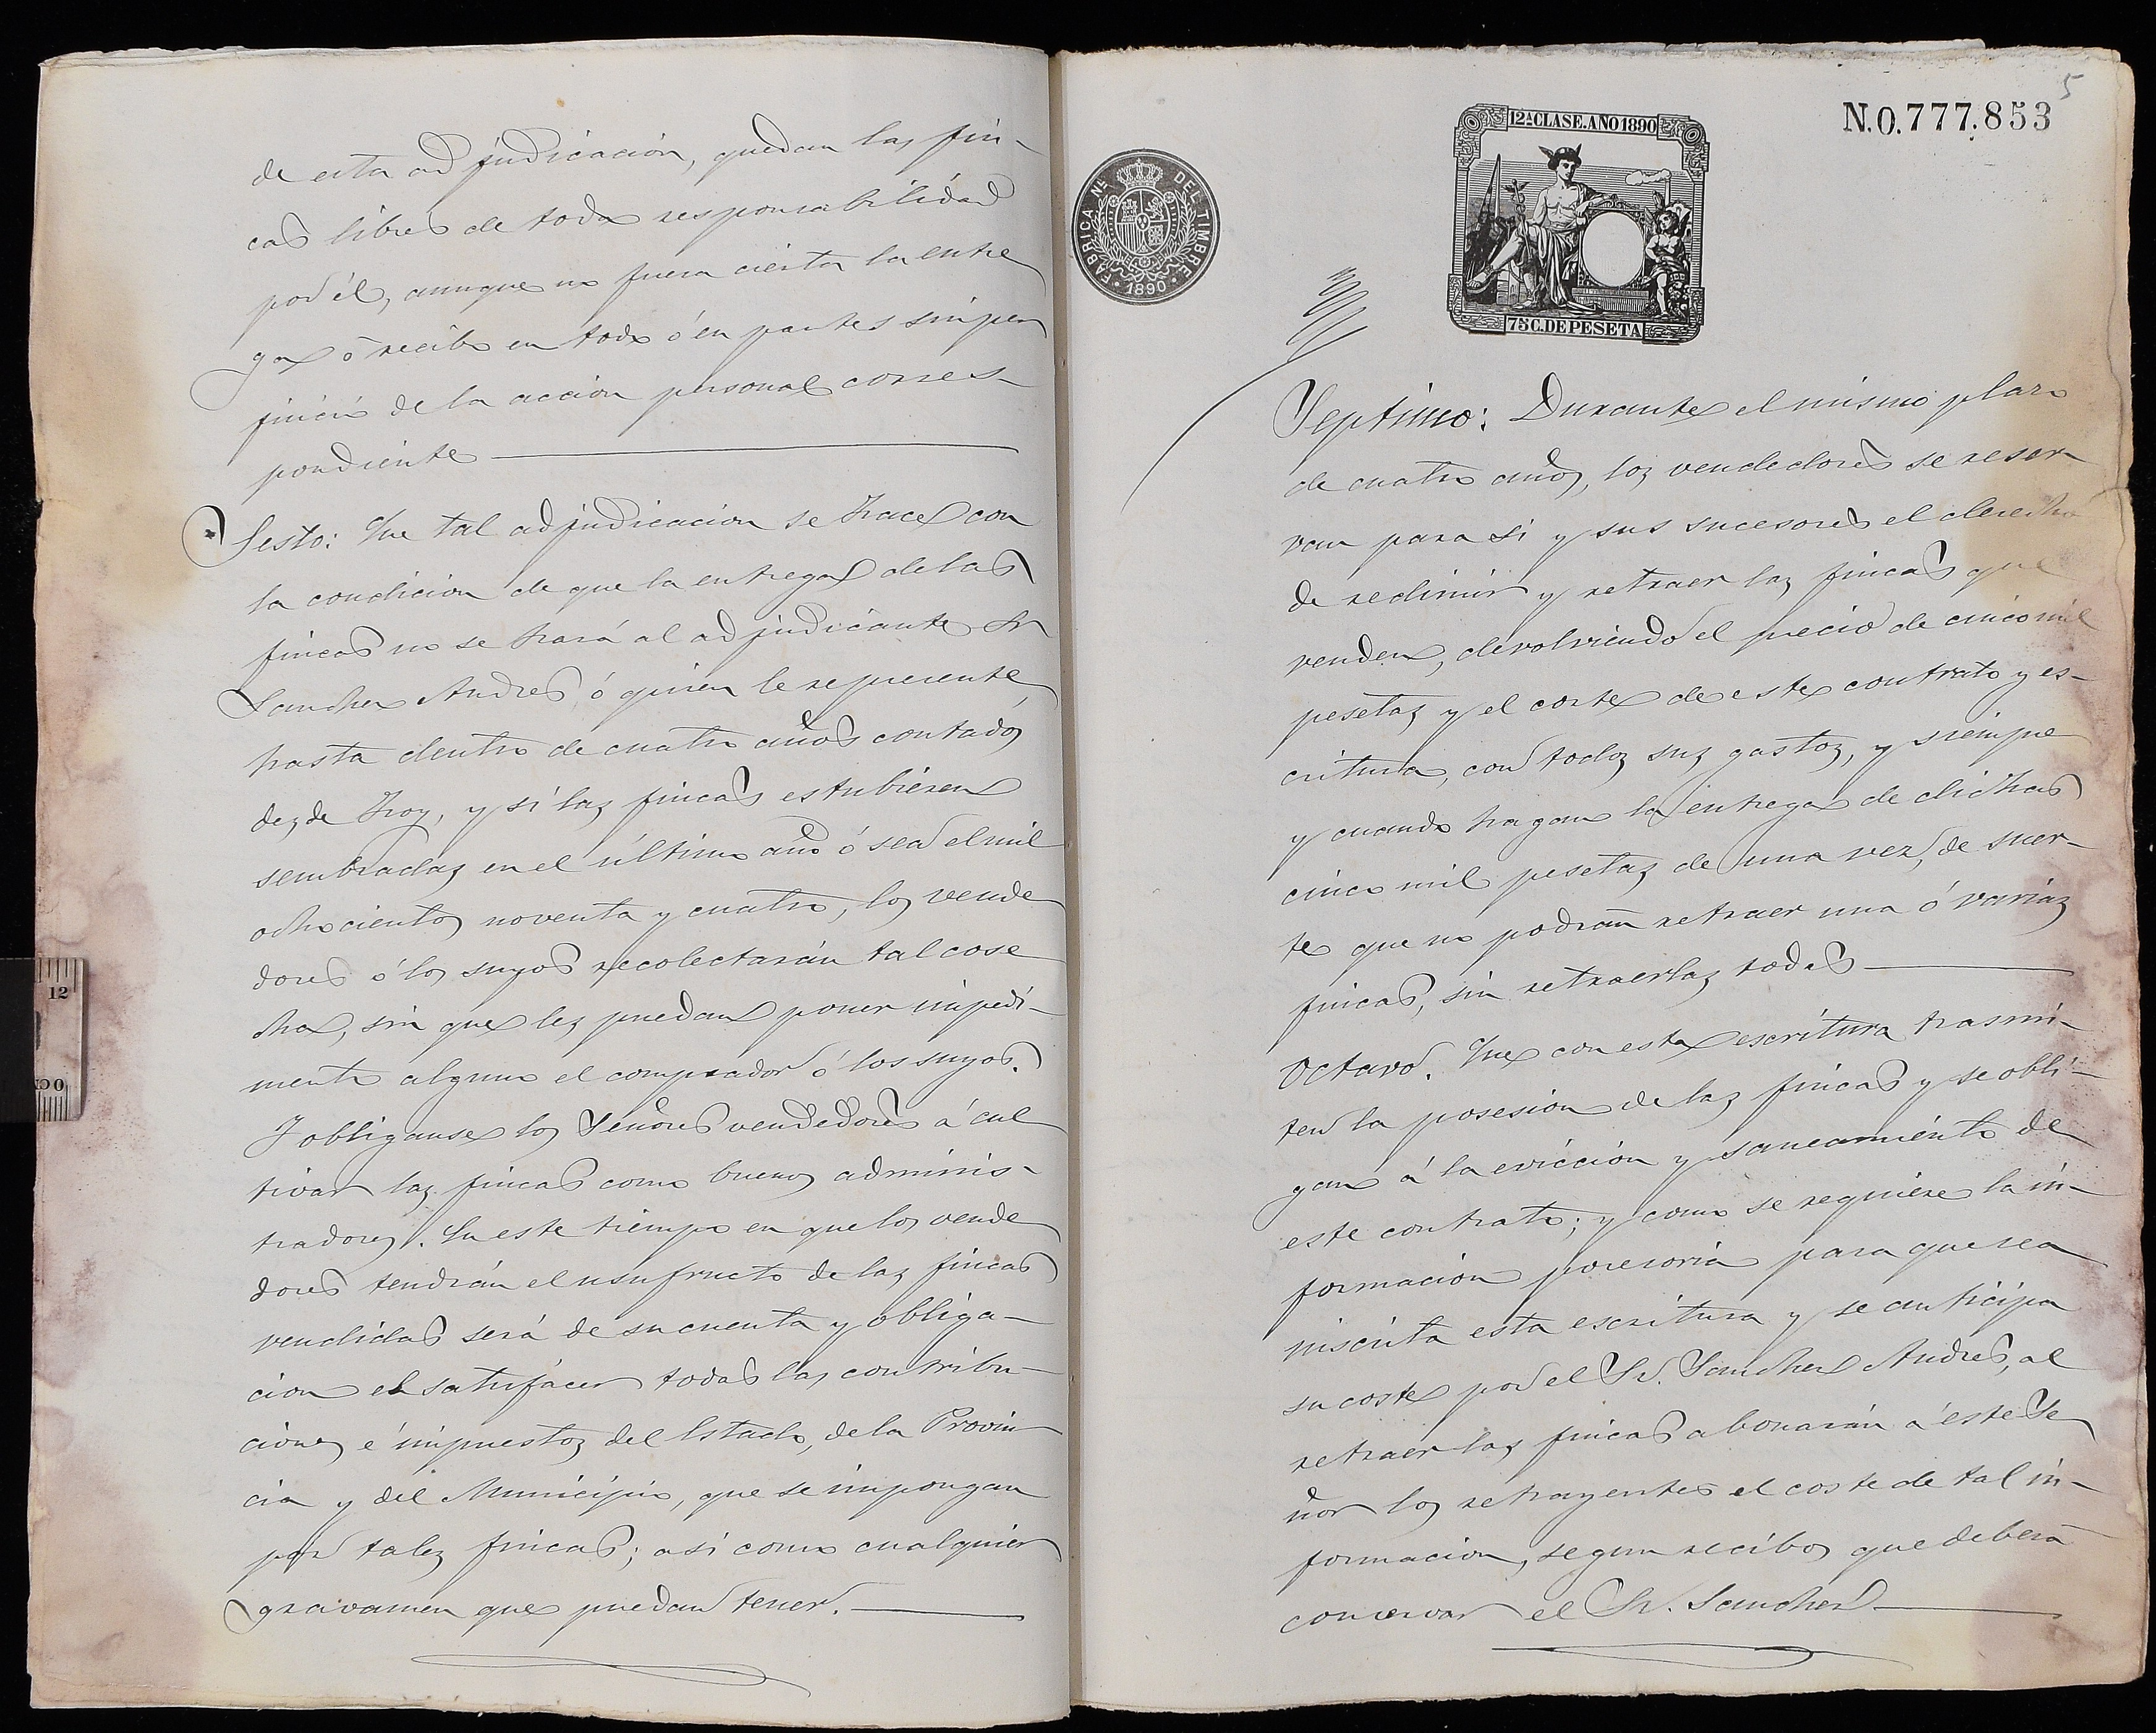 de esta adjudicación, quedan las fin-
cas libres de toda responsabilidad
por él, aunque no fuera cierta la entre
ga ó recibo en todo ó en partes sin per
juicio de la accion personal corres-
pondiente
Sesto: Que tal adjudicacion se hace con
la condicion de que la entrega de las
fincas no se hará al adjudicante Sr
Sanchez Andres, ó quien le represente,
hasta dentro de cuatro años contados
desde hoy, y si las fincas estubieren
sembradas en el último año ó sea el mil
ochocientos noventa y cuatro, los vende
dores ó los suyos recolectarán tal cose
cha, sin que les puedan poner impedi-
mento alguno el comprador ó los suyos.
Y obliganse los Señores vendedores á cul
tivar las fincas como buenos adminis-
tradores. En este tiempo en que los vende
dores tendrán el usufructo de las fincas
vendidas será de su cuenta y obliga-
cion el satisfacer todas las contribu-
ciones é impuestos del Estado, de la Provin
cia y del Municipio, que se impongan
por tales fincas; asi como cualquier
gravamen que puedan tener.
5
N.0.777.853
12ª CLASE. AÑO 1890
75 C. DE PESETA
FABRICA NL. DEL TIMBRE
1890
Septimo: Durante el mismo plazo
de cuatro años, los vendedores se reser-
van para si y sus sucesores el derecho
de redimir y retraer las fincas que
venden, devolviendo el precio de cinco mil
pesetas y el coste de este contrato y es-
critura, con todos sus gastos, y siempre
y cuando hagan la entrega de dichas
cinco mil pesetas de una vez, de suer-
te que no podrán retraer una ó varias
fincas, sin retraerlas todas
Octavo. Que con esta escritura trasmi-
ten la posesion de las fincas y se obli-
gan á la evicción y saneamiento de
este contrato; y como se requiere la in-
formacion posesoria para que sea
inscrita esta escritura y se anticipa
su coste por el Sr. Sanchez Andres, al
retraer las fincas abonarán á este Se
ñor los retrayentes el coste de tal in-
formacion, segun recibos que deberá
conservar el Sr. Sanchez
12